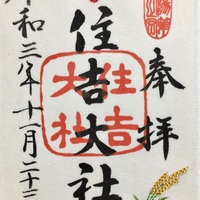 奉拝
住吉大社
住吉
大社
令和三年十一月二十三